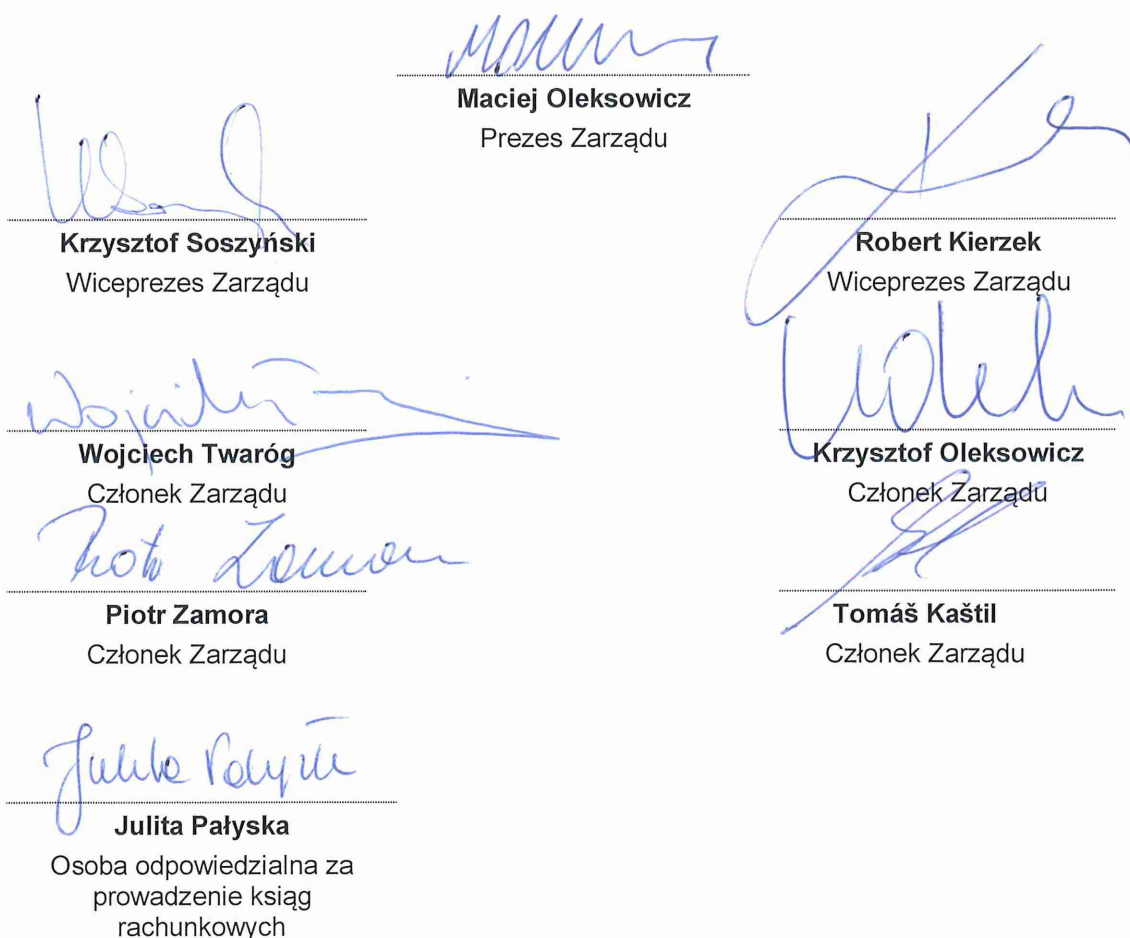 Maciej Oleksowicz
Prezes Zarządu
Krzysztof Soszyński
Wiceprezes Zarządu
Robert Kierzek
Wiceprezes Zarządu
Wojciech Twaróg
Członek Zarządu
Krzysztof Oleksowicz
Członek Zarządu
Piotr Zamora
Członek Zarządu
Tomáš Kaštil
Członek Zarządu
Julita Pałyska
Osoba odpowiedzialna za
prowadzenie ksiąg
rachunkowych